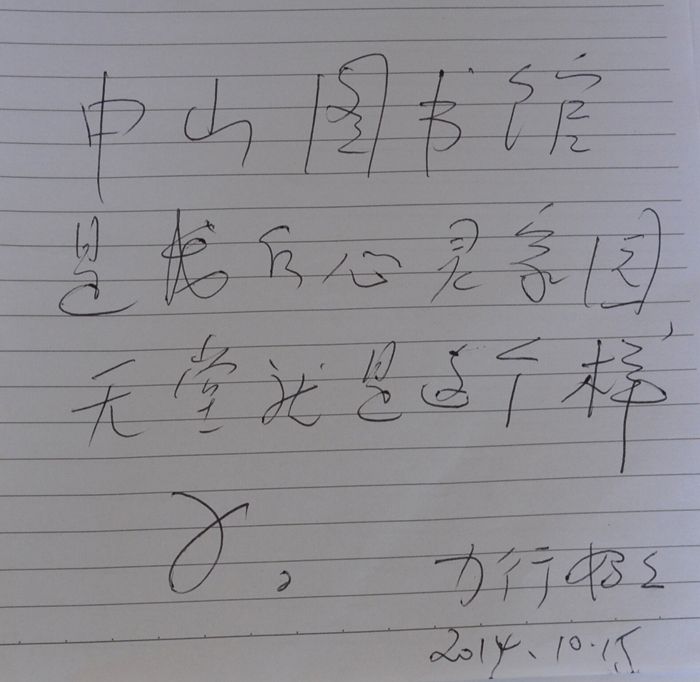 中山图书馆
是我的心灵家园,
天堂就是这个样
子。
力行
2014.10.15